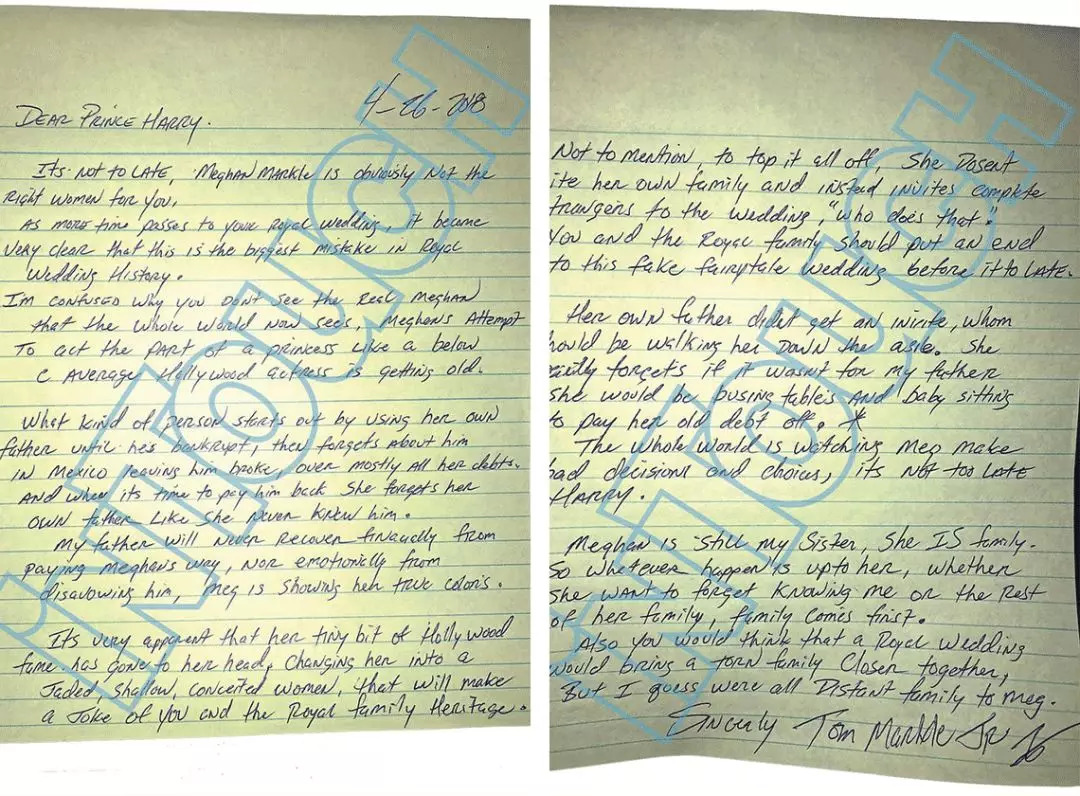 4-26-2018
DEAR PRINCE HARRY.
Its not to LATE, Meghan Markle is obviously Not the
Right women for you.
As more time passes to your Royal wedding, it became
very clear that this is the biggest mistake in Royal
Wedding History.
Im confused why you don't see the Real Meghan
that the whole world now sees, Meghans Attempt
To act the part of a princess Like a below
C Average Hollywood actress is getting old.
What kind of person starts out by using her own
father until he's bankrupt, then forgets about him
in Mexico leaving him broke, over mostly all her debts.
And when its time to pay him back she forgets her
own father Like she never knew him.
My father will never recover financally from
paying Meghans way, nor emotionally from
disavowing him, meg is showing her true colors.
Its very apparent that her tiny bit of Hollywood
fame has gone to her head, Changing her into a
Jaded, Shallow, conceited women, that will make
a Joke of you and the Royal family Heritage.
Not to mention, to top it all off, She Dosent
ite her own family and instead invites complete
trangers to the wedding, "who does that."
You and the Royal family should put an end
to this fake fairytale wedding before it to LATE.
Her own father didnt get an invite, whom
hould be walking her down the asile. She
forgets if it wasnt for my father
she would be busing tables And baby sitting
to pay her old debt off. *
The whole world is watching Meg make
bad decisions and choices, its NOT TOO LATE
HARRY.
Meghan is still my Sister, She IS family.
So whatever happen is upto her, whether
she want to forget Knowing me or the Rest
of her family, family comes first.
Also you would think that a Royal wedding
would bring a torn family Closer together,
But I guess were all Distant family to Meg.
Sincerly Tom Markle Jr
INTOUCH
INTOUCH